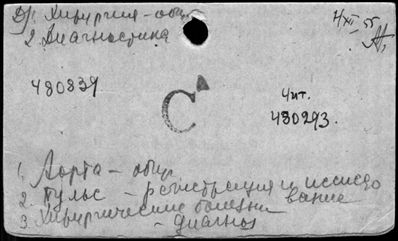 Др. Хирургия - общ.
2. Диагностика
4/XII 55
480839
С
Чит.
480293.
1. Аорта - общ.
2. Пульс - регистрация и исследование
3. Хирургические болезни - диагноз